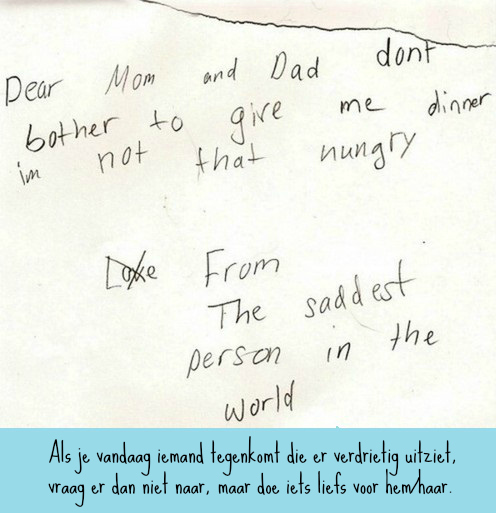 Dear Mom and Dad dont
bother to give me dinner
im not that nungry
Love From
The saddest
person in the
world
Als je vandaag iemand tegenkomt die er verdrietig uitziet,
vraag er dan niet naar, maar doe iets liefs voor hem/haar.